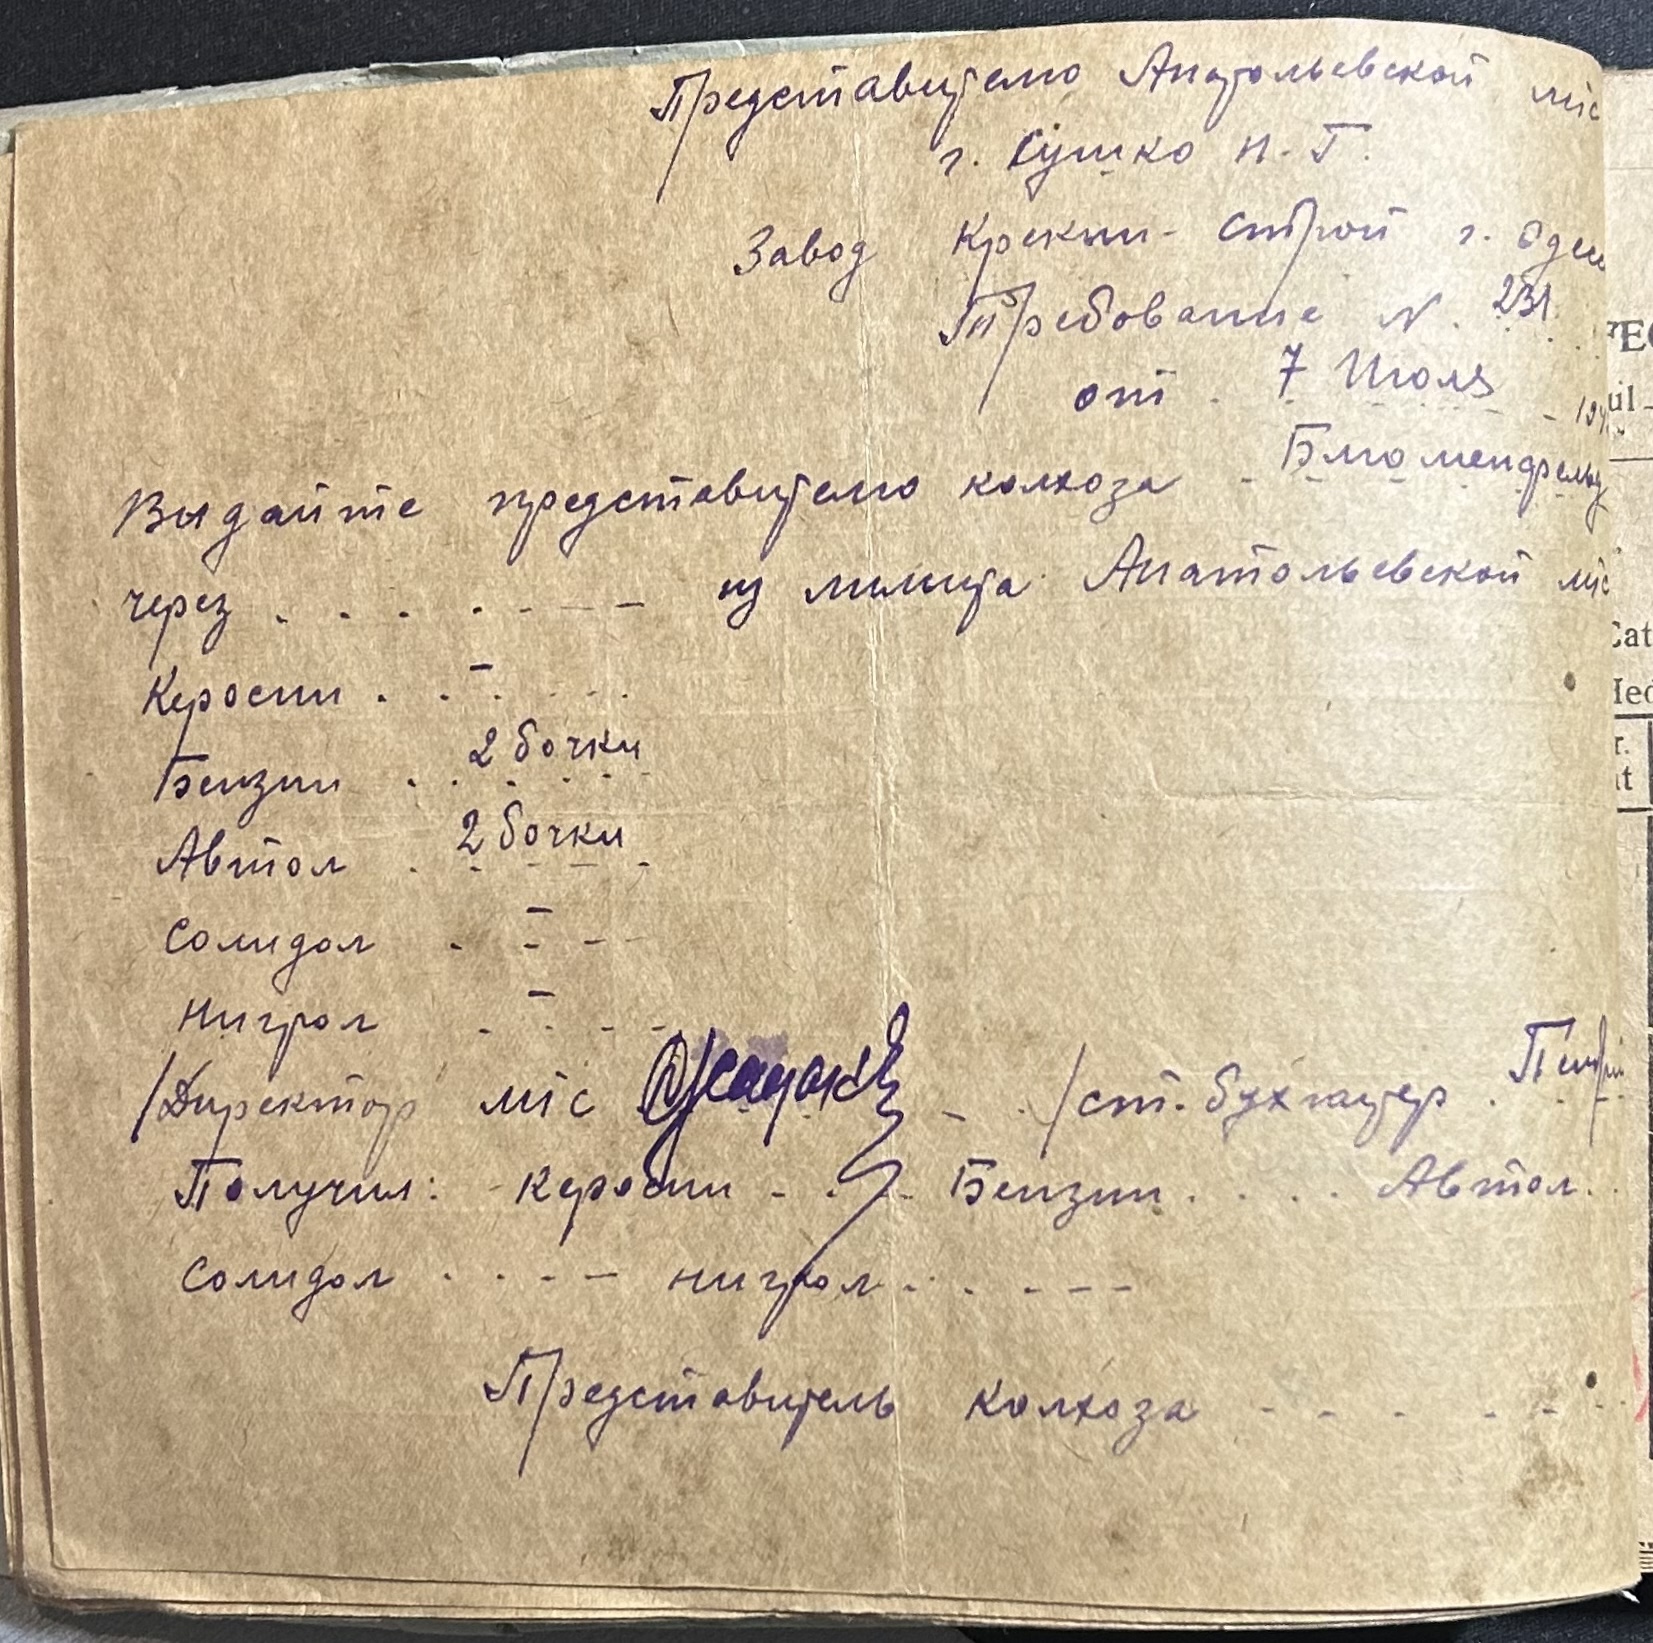 Представителю Анатольевской міс
г. Сушко Н. Г.
Завод Крекин-строй г. Одес
Требование N. 231
от . 7 Июля - 194
Выдайте представителю колхоза - Блюменфельд
через . . . . - - - из лимита Анатольевской міс
Керосин . . - . . . .
Бензин . . 2 бочки
Автол . 2 бочки
Солидол . - - -
Нигрол . - . . -
/Директор міс - . /ст. бухгалтер .
Получил: Керосин - . . . Бензин . . . . Автол . .
Солидол . . - - - нигрол . . . - - -
Представитель колхоза - - - - - -
РЕС
ul
Cat
Med
r.
it